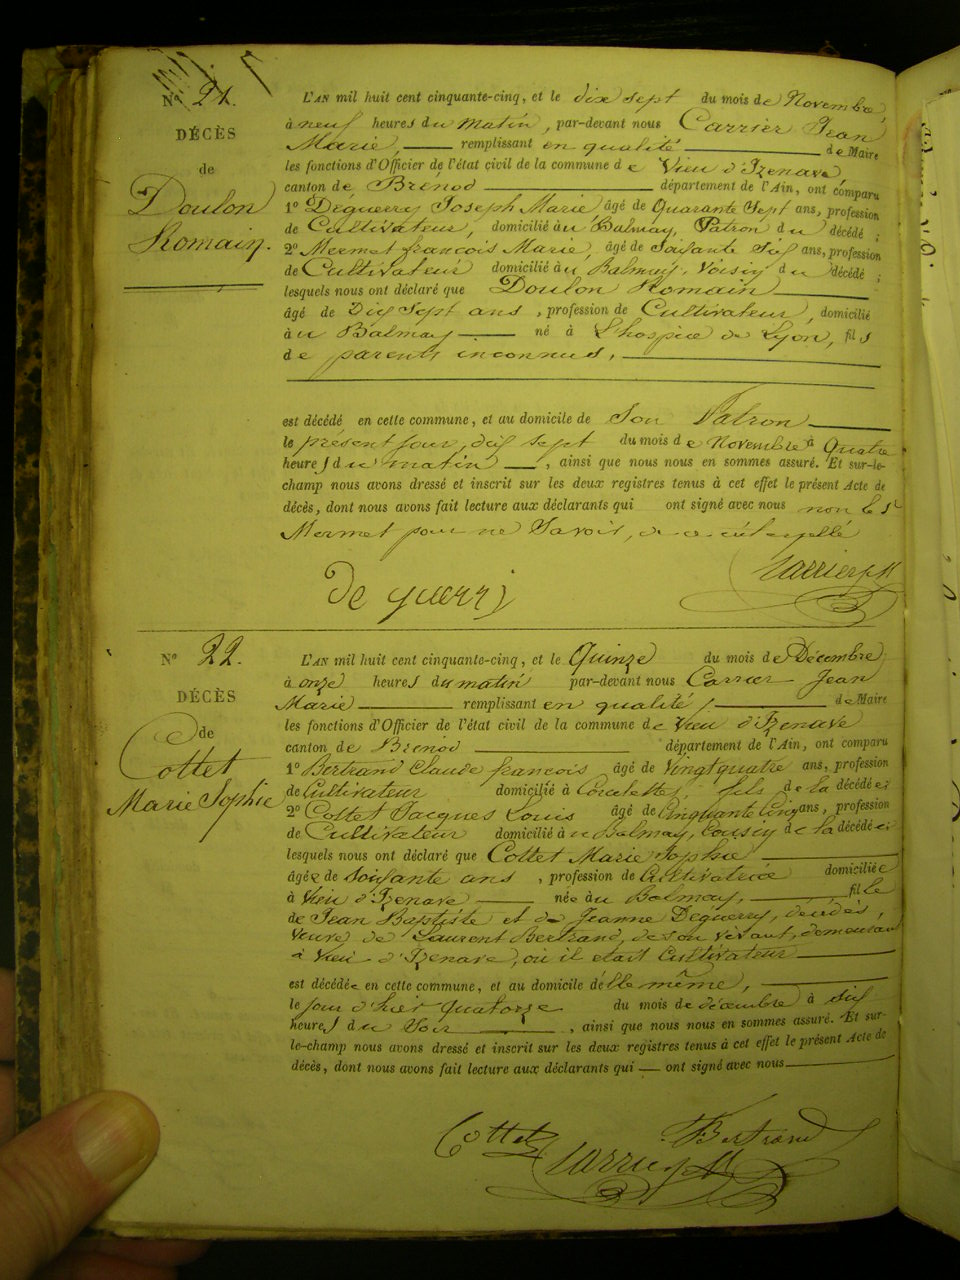 N° 21.
DÉCÈS
de
Doulon
Romain.
L'AN mil huit cent cinquante-cinq, et le dix sept du mois de Novembre,
à neuf heures du matin, par-devant nous Carrier Jean
Marie, remplissant en qualité de Maire
les fonctions d'Officier de l'état civil de la commune de Vieu d'Izenave,
canton de Brénod département de l'Ain, ont comparu
1° Deguerry Joseph Marie âgé de Quarante Sept ans, profession
de Cultivateur, domicilié au Balmay, Patron du décédé ;
2° Mermet françois Marie, âgé de Soixante Six ans, profession
de Cultivateur domicilié au Balmay, Voisin du décédé ;
lesquels nous ont déclaré que Doulon Romain
âgé de Dix Sept ans, profession de Cultivateur, domicilié
à au Balmay né à L'hospice de Lyon, fils
de parents inconnus,
est décédé en cette commune, et au domicile de Son Patron
le présent jour, dix sept du mois de Novembre à Quatre
heures du matin, ainsi que nous nous en sommes assuré. Et sur-le-
champ nous avons dressé et inscrit sur les deux registres tenus à cet effet le présent Acte de
décès, dont nous avons fait lecture aux déclarants qui ont signé avec nous non le Sr
Mermet pour ne Savoir, de ce
de guerri
Carrier JM
N° 22.
DÉCÈS
de
Cottet
Marie Sophie
L'AN mil huit cent cinquante-cinq, et le Quinze du mois de Décembre
à onze heures du matin par-devant nous Carrier Jean
Marie remplissant en qualité, de Maire
les fonctions d'Officier de l'état civil de la commune de Vieu d'Izenave
canton de Brénod département de l'Ain, ont comparu
1° Bertrand Claude françois âgé de Vingt quatre ans, profession
de Cultivateur domicilié à Corcelettes, fils de la décédée
2° Cottet Jacques Louis âgé de Cinquante Cinq ans, profession
de Cultivateur domicilié au Balmay, Cousin de la décédée
lesquels nous ont déclaré que Cottet Marie Sophie
âgée de Soixante ans, profession de Cultivatrice domiciliée
à Vieu d'Izenave née au Balmay, fille
de Jean Baptiste et de Jeanne Deguerry, décédés,
Veuve de Laurent Bertrand, de son vivant, demeurant
à Vieu d'Izenave, où il était Cultivateur
est décédée en cette commune, et au domicile d'elle même,
le jour d'hier quatorze du mois de décembre à six
heures du Soir, ainsi que nous nous en sommes assuré. Et sur-
le-champ nous avons dressé et inscrit sur les deux registres tenus à cet effet le présent Acte de
décès, dont nous avons fait lecture aux déclarants qui ont signé avec nous
Cottet Bertrand
Carrier JM